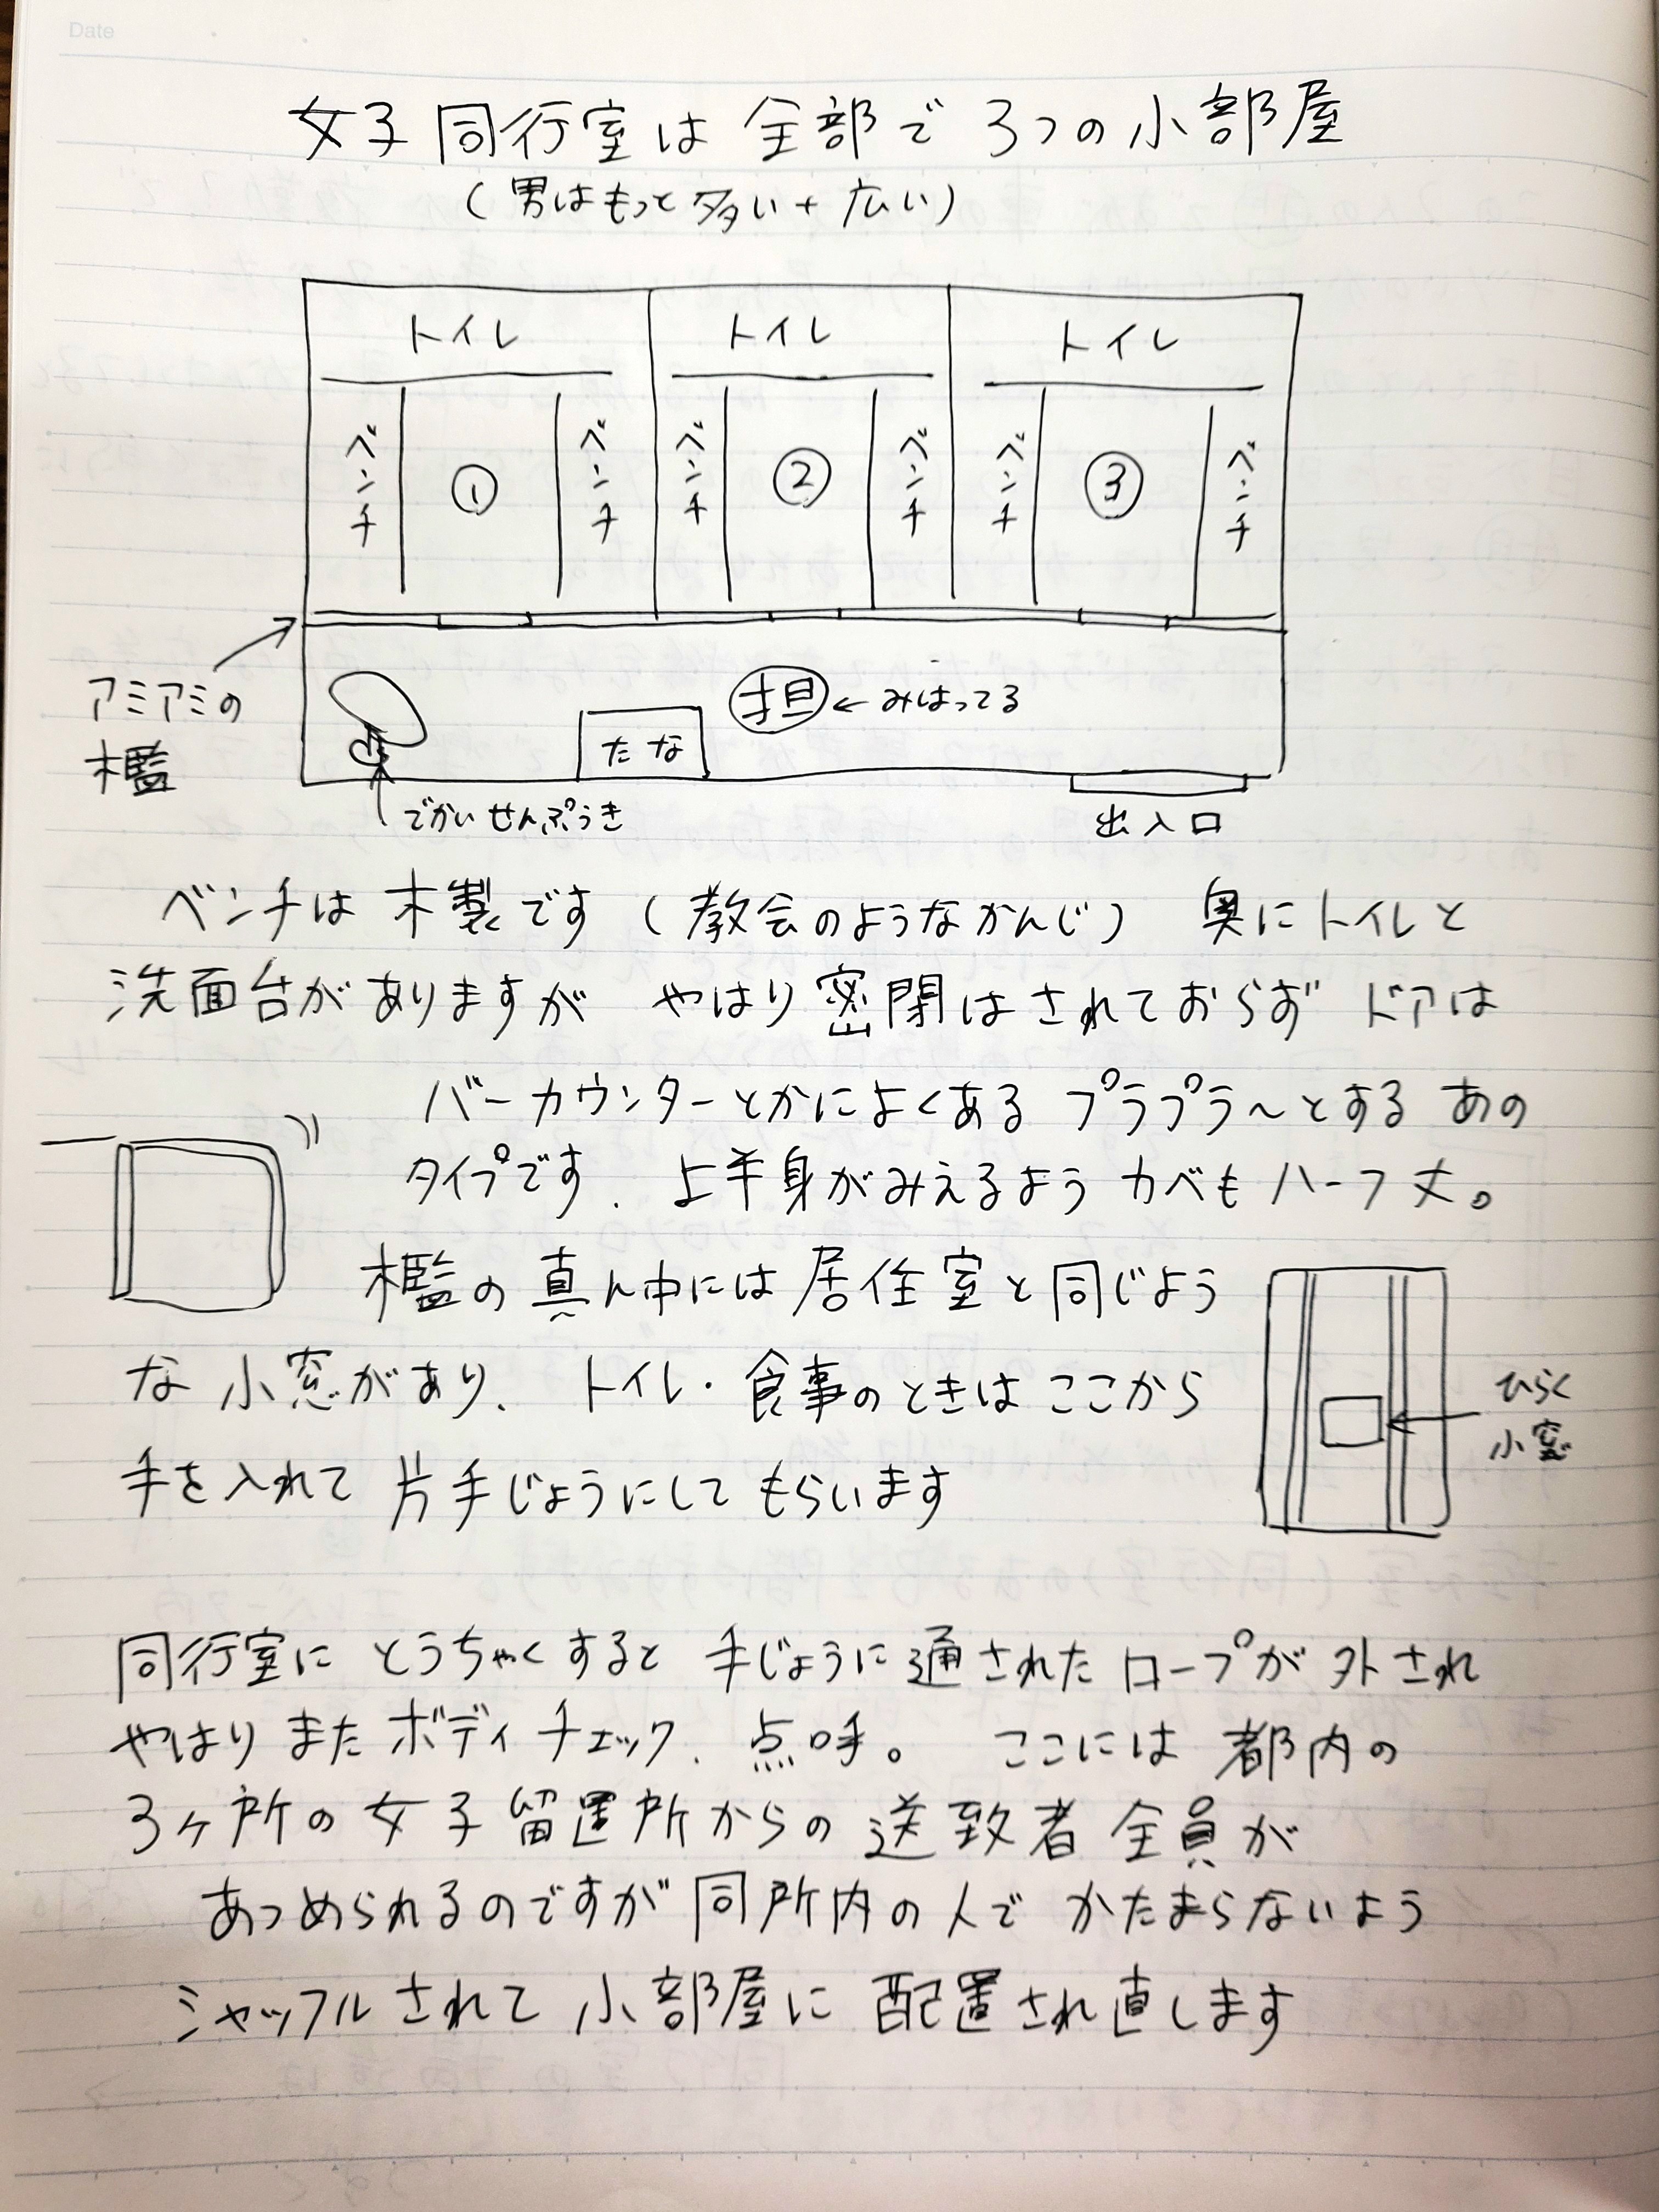 Date
女子同行室は全部で3つの小部屋
(男はもっと多い+広い)
トイレ トイレ トイレ
ベンチ ① ベンチ ベンチ ② ベンチ ベンチ ③ ベンチ
アミアミの
檻
担 ← みはってる
たな
でかいせんぷうき
出入口
ベンチは木製です(教会のようなかんじ) 奥にトイレと
洗面台がありますが やはり密閉はされておらず ドアは
バーカウンターとかによくある プラプラ〜とする あの
タイプです、上半身がみえるよう カベもハーフ丈。
檻の真ん中には居住室と同じよう
な小窓があり、トイレ・食事のときはここから
手を入れて片手じょうにしてもらいます
ひらく
小窓
同行室にとうちゃくすると 手じょうに通されたロープが外され
やはりまたボディチェック、点呼。 ここには都内の
3ヶ所の女子留置所からの送致者全員が
あつめられるのですが同所内の人でかたまらないよう
シャッフルされて小部屋に配置され直します